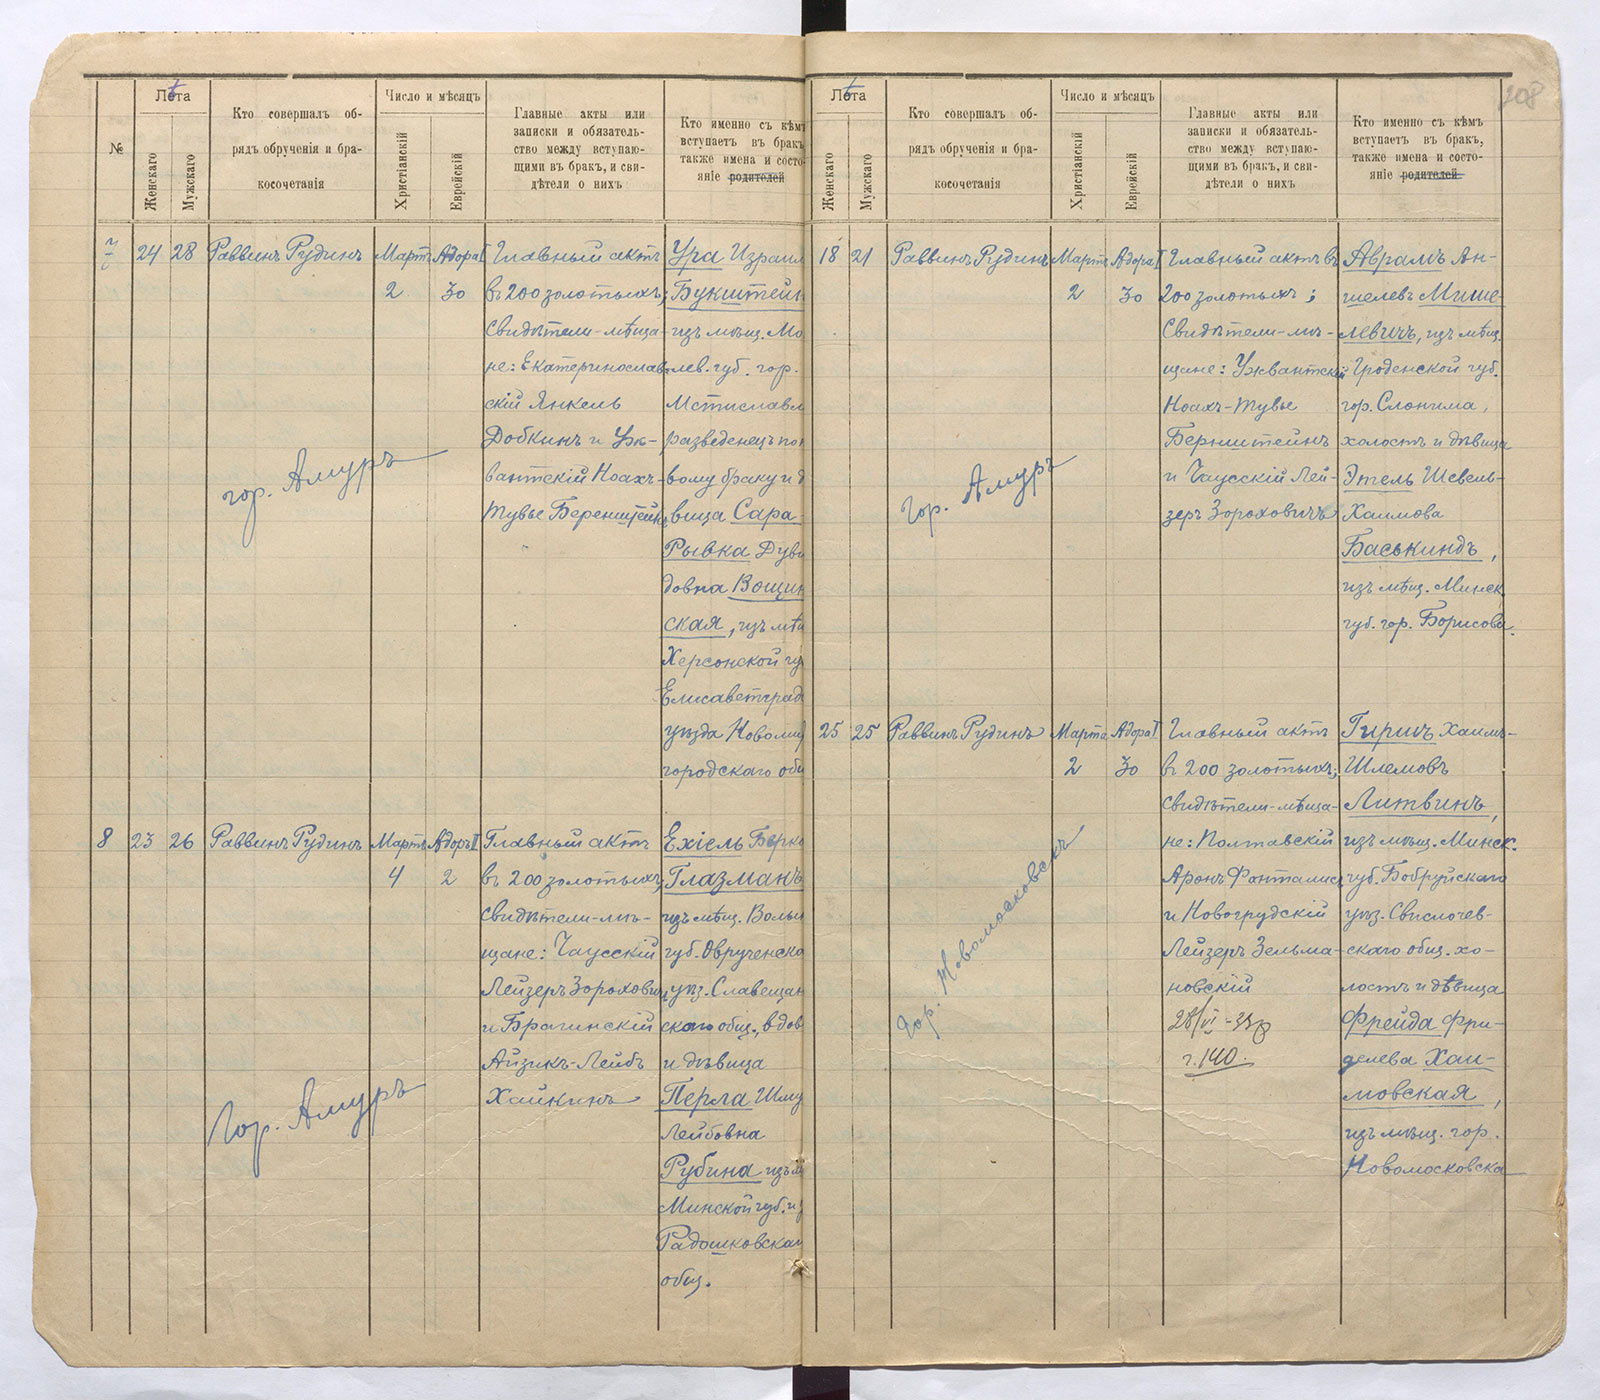 №
Лѣта
Женскаго
Мужскаго
Кто совершалъ об-
рядъ обрученія и бра-
косочетанія
Число и мѣсяцъ
Христіанскій
Еврейскій
Главные акты или
записки и обязатель-
ство между вступаю-
щими въ бракъ, и сви-
дѣтели о нихъ
Кто именно съ кѣмъ
вступаетъ въ бракъ
также имена и состо-
яніе родителей
7
24
28
Раввинъ Рудинъ
гор. Амуръ
Мартъ
2
Адора I
30
Главный актъ
въ 200 золотыхъ;
Свидѣтели-мѣща-
не: Екатеринослав-
скій Янкель
Добкинъ и Уж-
вантскій Ноахъ-
Тувье Беренштейнъ
Ура Израил
Букштейн
изъ мѣщ. Мо
лев. губ. гор.
Мстиславл
разведенецъ по
вому браку и д
вица Сара-
Рывка Дуви
довна Вощин
ская, изъ мѣ
Херсонской гу
Елисаветград
уѣзда Новоми
городскаго общ
8
23
26
Раввинъ Рудинъ
Гор. Амуръ
Мартъ
4
Адоръ II
2
Главный актъ
въ 200 золотыхъ;
Свидѣтели-мѣ-
щане: Чаусскій
Лейзеръ Зорохович
и Брагинскій
Айзикъ-Лейбъ
Хайкинъ
Ехіель Берко
Глазманъ
изъ мѣщ. Волын
губ. Овруческа
уѣз. Славещан
скаго общ., вдов
и дѣвица
Перла Шму
Лейбовна
Рубина изъ м
Минской губ. и у
Радошковска
общ.
208
Лѣта
Женскаго
Мужскаго
Кто совершалъ об-
рядъ обрученія и бра-
косочетанія
Число и мѣсяцъ
Христіанскій
Еврейскій
Главные акты или
записки и обязатель-
ство между вступаю-
щими въ бракъ, и сви-
дѣтели о нихъ
Кто именно съ кѣмъ
вступаетъ въ бракъ,
также имена и состо-
яніе родителей
18
21
Раввинъ Рудинъ
Гор. Амуръ
Мартъ
2
Адора I
30
Главный актъ въ
200 золотыхъ;
Свидѣтели-мѣ-
щане: Ужвантскій
Ноахъ-Тувье
Бернштейнъ
и Чаусскій Лей-
зеръ Зороховичъ
Аврамъ Ан-
шелевъ Мише-
левичъ, изъ мѣщ.
Гроденской губ.
гор. Слонима,
холостъ и дѣвица
Этель Шевель-
Хаимова
Баськиндъ,
изъ мѣщ. Минск.
губ. гор. Борисова.
25
25
Раввинъ Рудинъ
Гор. Новомосковскъ
Марта
2
Адора I
30
Главный актъ
въ 200 золотыхъ;
Свидѣтели-мѣща-
не: Полтавскій
Аронъ Фонталис
и Новогрудскій
Лейзеръ Зельма-
новскій
г. 140.
Гиршъ Хаимъ-
Шлемовъ
Литвинъ,
изъ мѣщ. Минск.
губ. Бобруйскаго
уѣз. Свислочев-
скаго общ. хо-
лостъ и дѣвица
Фрейда Фри-
делева Хаи-
мовская,
изъ мѣщ. гор.
Новомосковска